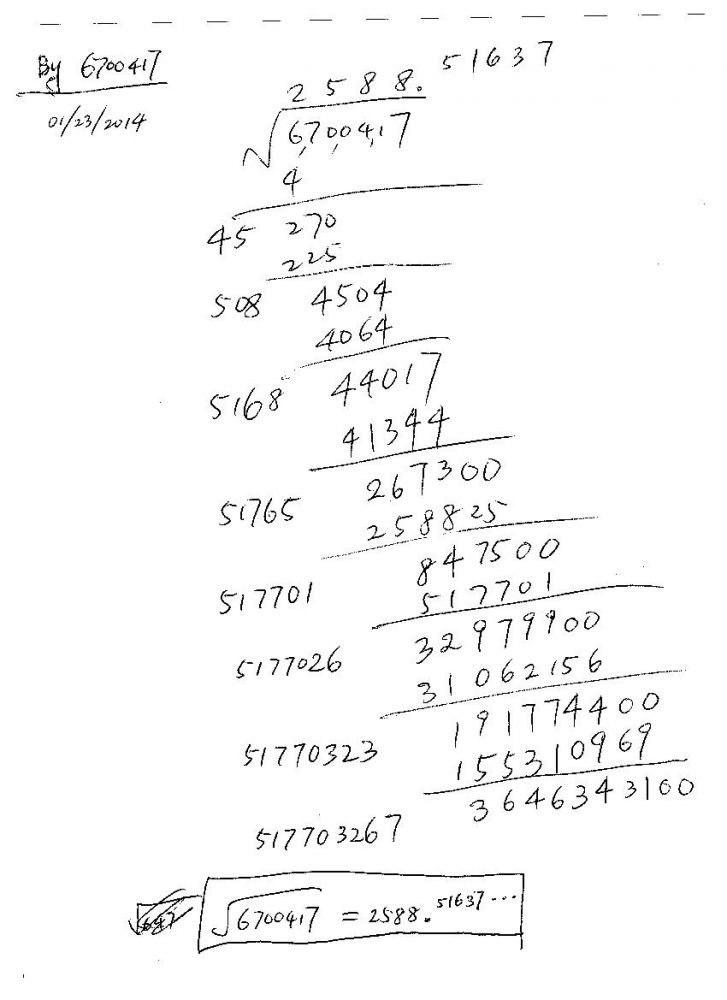 By 6700417
01/23/2014
2 5 8 8. 51637
√6,70,04,17
4
45 270
225
508 4504
4064
5168 44017
41344
51765 267300
258825
517701 847500
517701
5177026 32979900
31062156
51770323 191774400
155310969
517703267 3646343100
√6700417 = 2588.51637...